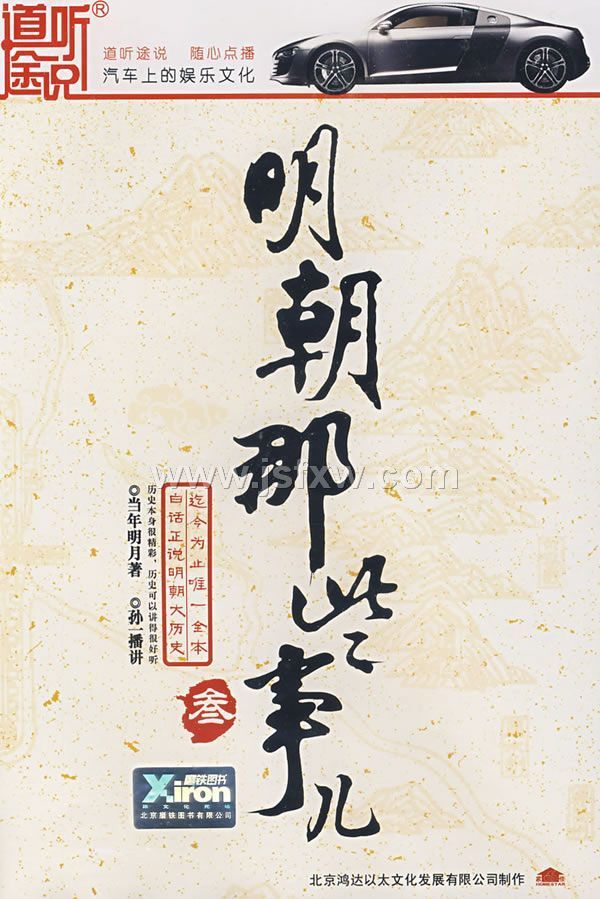 道听途说®
道听途说 随心点播
汽车上的娱乐文化
明朝那些事儿
www.jsfxw.com
迄今为止唯一全本
白话正说明朝大历史
历史本身很精彩，历史可以讲得很好听
◎当年明月著 ◎孙一播讲
叁
磨铁图书
X.iron
北京磨铁图书有限公司
北京鸿达以太文化发展有限公司制作
HOMESTAR